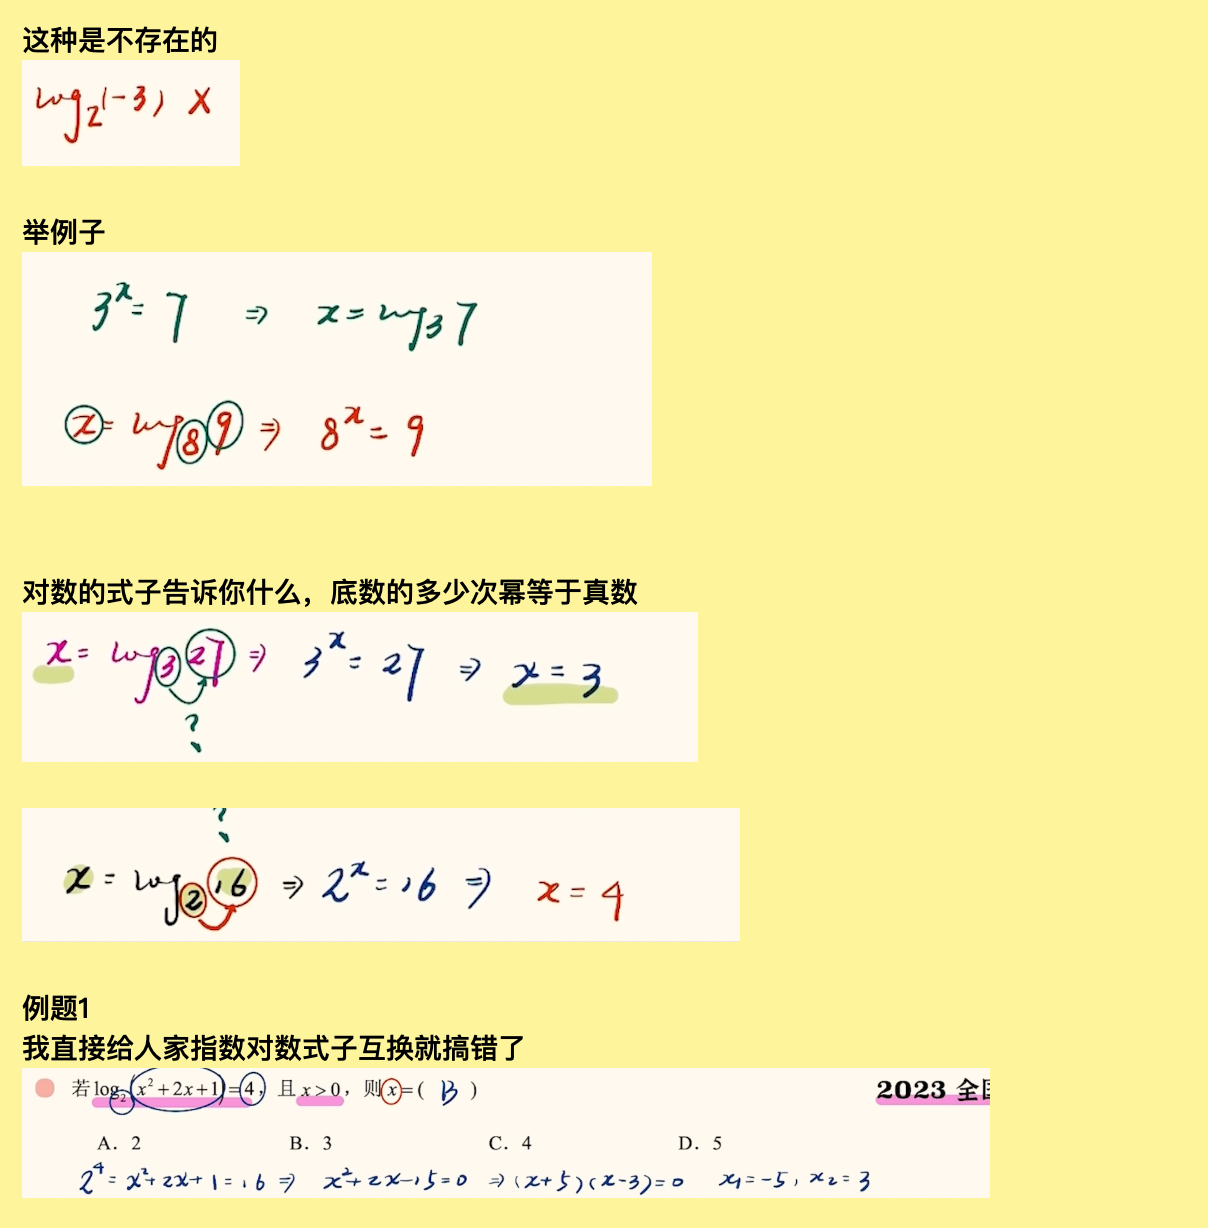 这种是不存在的
log₂(-3) X
举例子
3ˣ = 7 ⇒ x = log₃7
x = log₈9 ⇒ 8ˣ = 9
对数的式子告诉你什么，底数的多少次幂等于真数
x = log₃27 ⇒ 3ˣ = 27 ⇒ x = 3
?
?
x = log₂16 ⇒ 2ˣ = 16 ⇒ x = 4
例题1
我直接给人家指数对数式子互换就搞错了
若 log₂(x²+2x+1)=4，且 x>0，则 x=( B ) 2023 全国
A. 2 B. 3 C. 4 D. 5
2⁴ = x²+2x+1 = 16 ⇒ x²+2x-15=0 ⇒ (x+5)(x-3)=0 x₁=-5, x₂=3